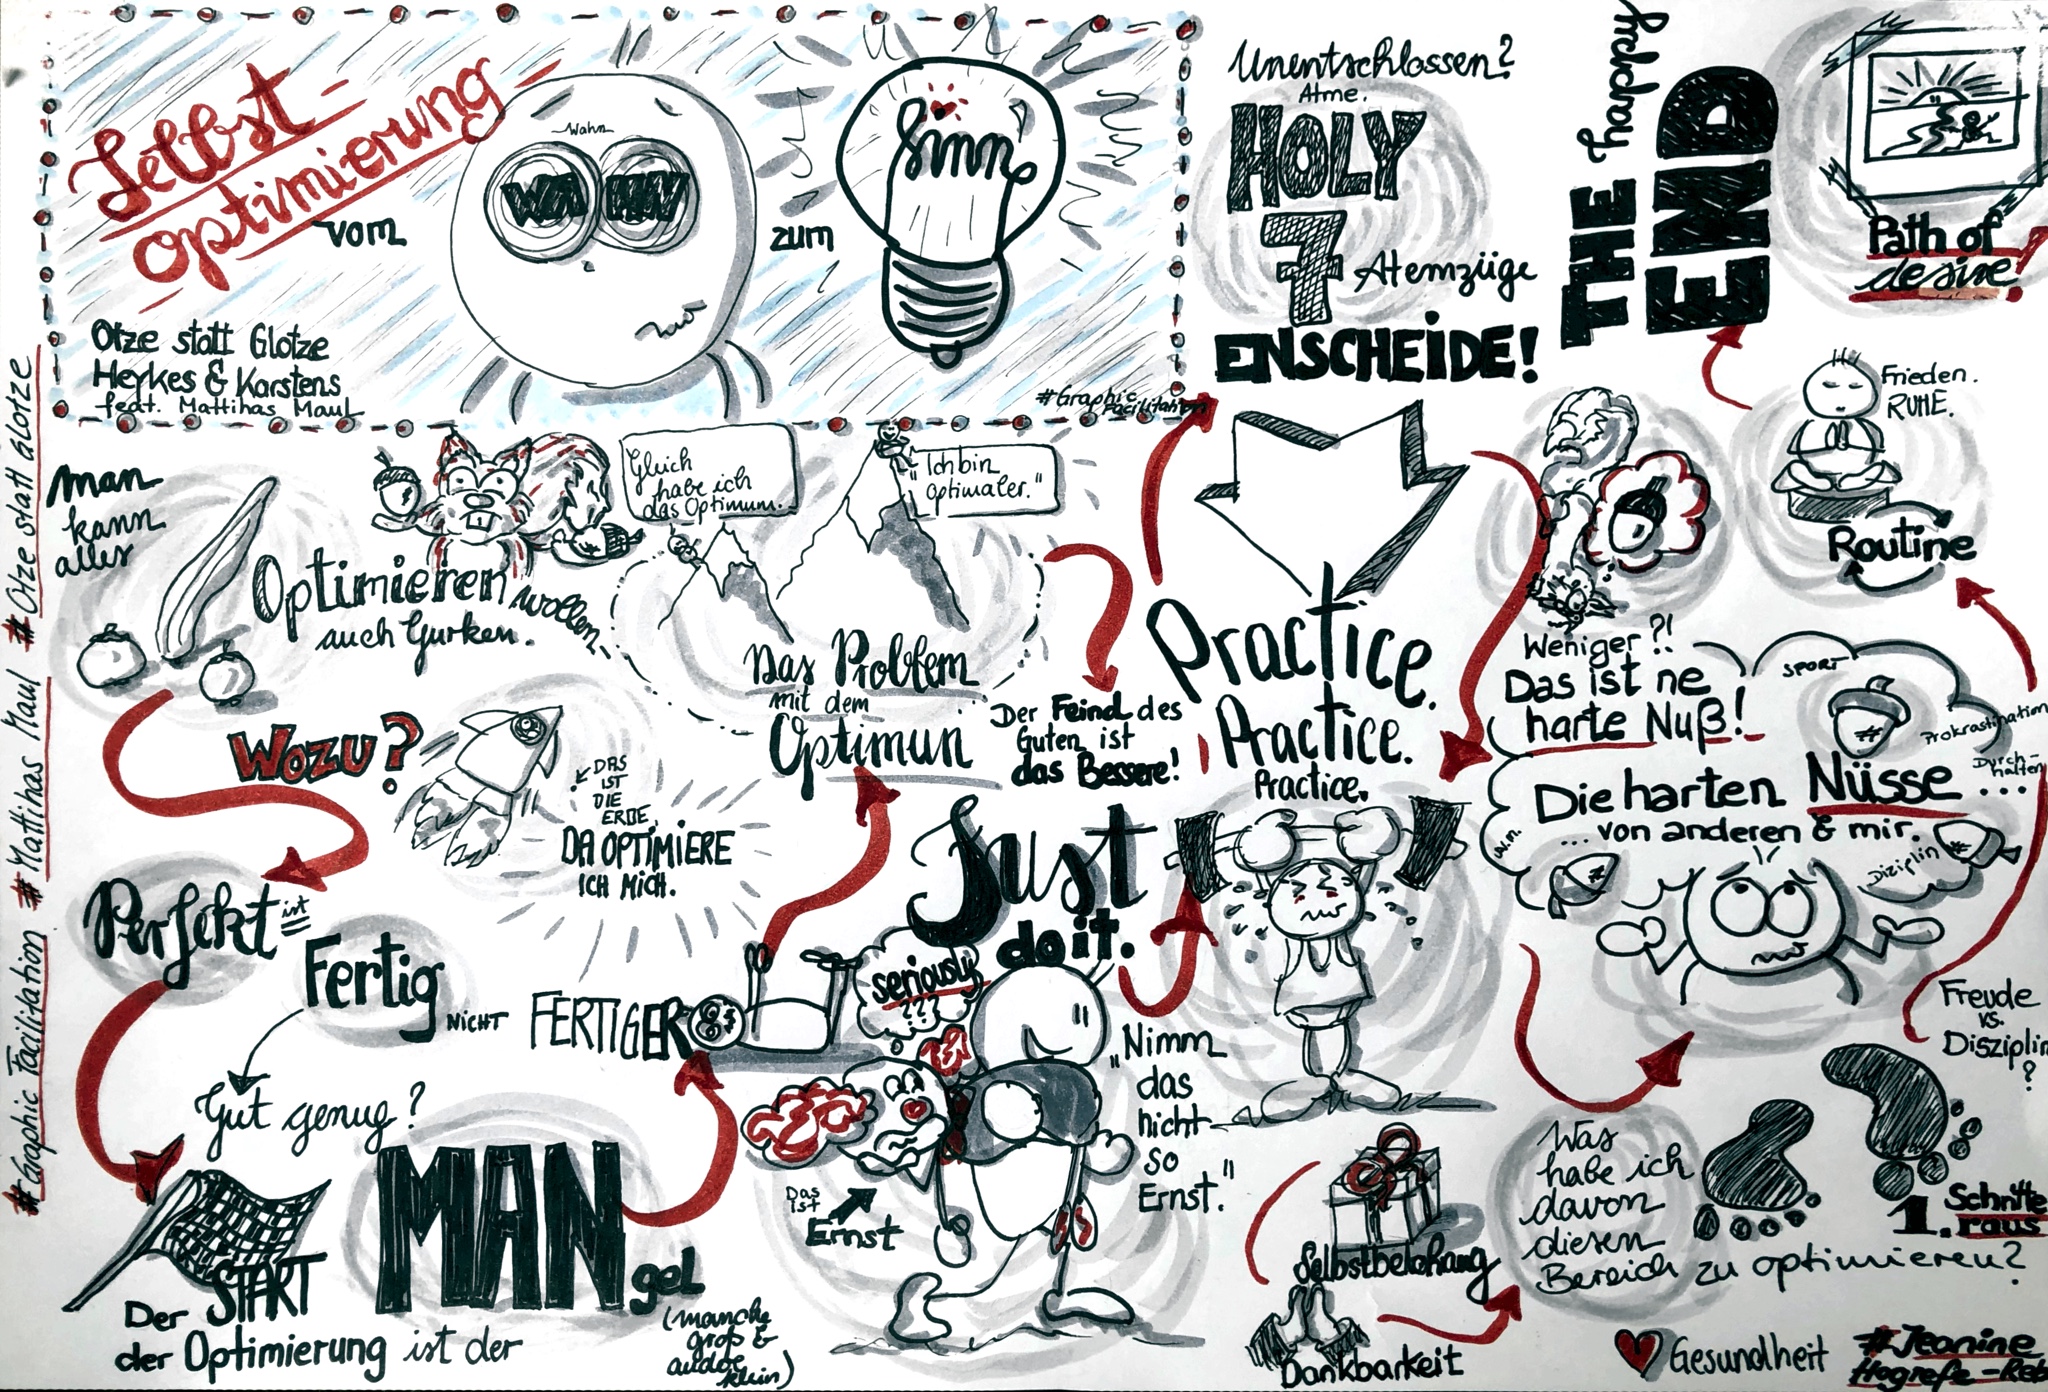 Selbst-
optimierung
vom
Wahn
WA HN
zum
Sinn
Otze statt Glotze
Heykes & Karstens
feat. Matthias Maul
#Graphic
Facilitation
# Graphic Facilitation # Matthias Maul # Otze statt Glotze
man
kann
alles
Optimieren
auch Gurken.
wollen
Gleich
habe ich
das Optimum.
"Ich bin
optimaler."
Das Problem
mit dem
Optimun
Der Feind des
Guten ist
das Bessere!
Wozu?
DAS
IST
DIE
ERDE.
DA OPTIMIERE
ICH MICH.
Perfekt ist
Fertig
NICHT FERTIGER
Gut genug?
Der START
der Optimierung ist der
MANgel
(manche
groß &
andere
klein)
Just
do it.
seriously
???
Das
ist
Ernst
"Nimm
das
nicht
so
Ernst."
Unentschlossen?
Atme.
HOLY
7 Atemzüge
ENSCHEIDE!
Practice.
Practice.
Practice.
Weniger?!
Das ist ne
harte Nuß!
SPORT
Prokrastination
Durch-
halten
Die harten Nüsse ...
... von anderen & mir.
u.v.m.
Diziplin
Freude
vs.
Disziplin
?
Was
habe ich
davon
diesen
Bereich zu optimieren?
1. Schritte
raus
Selbstbelohnung
Dankbarkeit
Gesundheit
Routine
Frieden.
RUHE.
THE (hapdray)
END
Path of
desire!
#Jeanine
Hogrefe-Reb